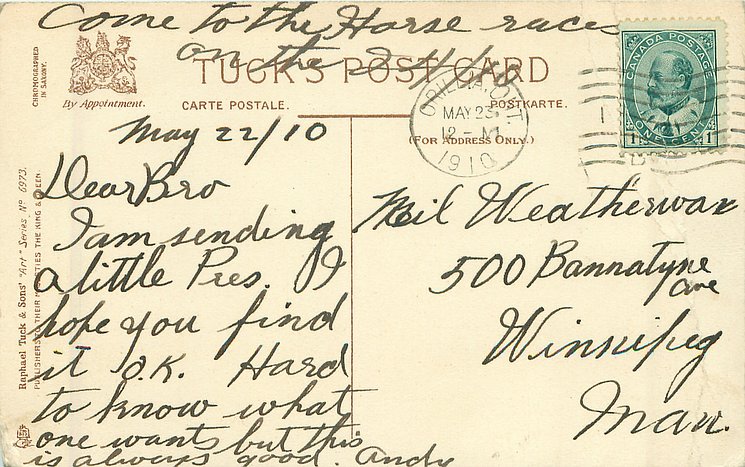 Come to the Horse races
on the 24/10
TUCK'S POST CARD
By Appointment.
CARTE POSTALE.
POSTKARTE.
(FOR ADDRESS ONLY.)
CHROMOGRAPHED
IN SAXONY.
ORILLIA, ONT
MAY 23
12 - M
1910
CANADA POSTAGE
ONE CENT
1 1
May 22/10
Dear Bro
I am sending
a little Pres. I
hope you find
it O.K. Hard
to know what
one wants but this
is always good. Andy
Weatherwax
500 Bannatyne
ave
Winnipeg
Man.
Raphael Tuck & Sons' "Art" Series Nº 6973.
PUBLISHERS TO THEIR MAJESTIES THE KING & QUEEN.